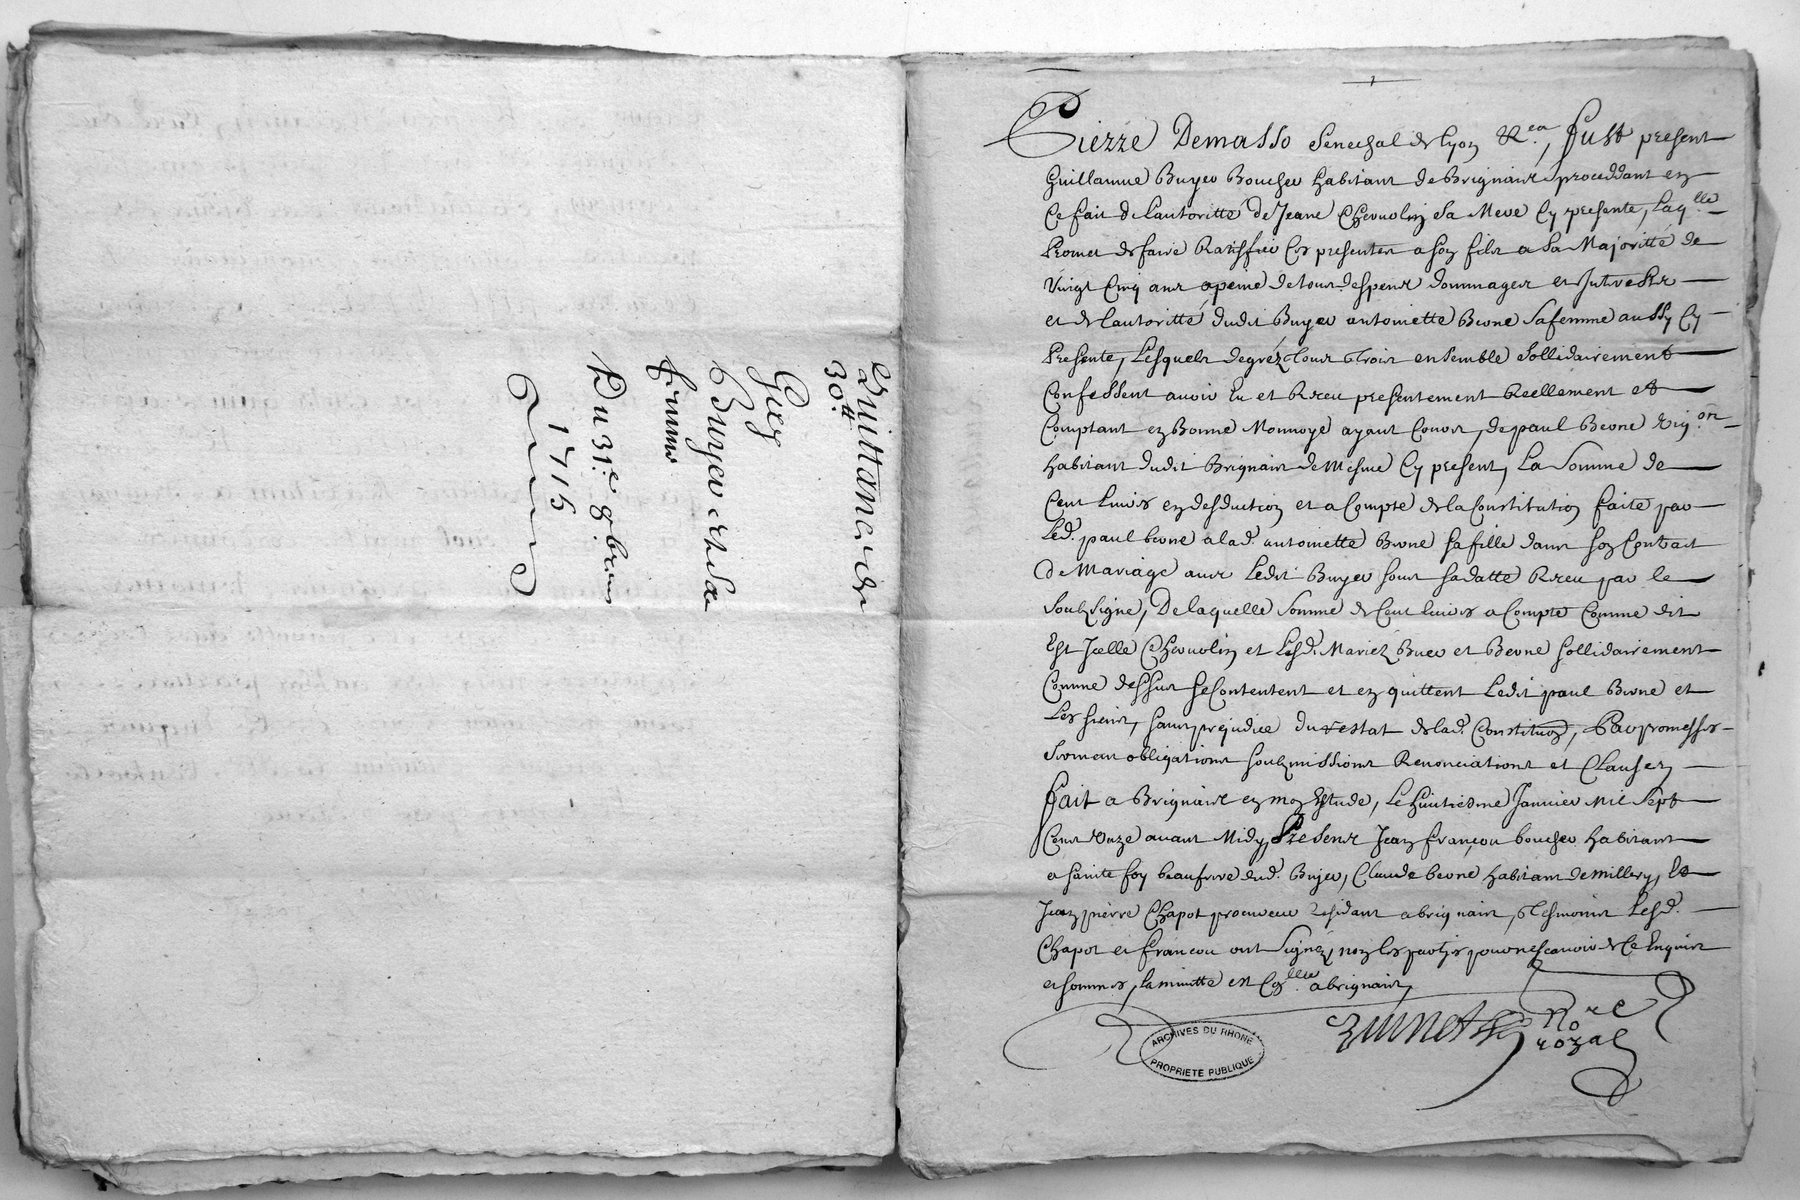 Quittance de
30ₜₜ
Guy
Buyer et Sa
femme
Du 31.e 8.bre
1715
Pierre Demasso Senechal de Lyon &.ea, fust present
Guillaume Buyer Boucher habitant de Brignais proceddant en
Ce fait de l'autoritté de Jeane Chervolin Sa Mere Cy presente, Laq.lle
Promet de faire Rattiffier Ces presentes a son fils a Sa Majoritté de
Vingt Cinq ans apeine de tous despens dommages et Intrests
et de l'autoritté dudit Buyer antoinette Berne Safemme aussy Cy
Presente, Lesquels degréz tous trois ensemble Sollidairement
Confessent avoir Eu et Receu presentement Reellement et
Comptant en Bonne Monnoye ayant Cours, de paul Berne Vig.on
habitant dudit Brignais de Mesme Cy present, La Somme de
Cent Livres en desduction et a Compte de la Constitution faite par
Led. paul berne a lad. antoinette Berne Sa fille dans Son Contrat
De Mariage avec Ledit Buyer Sous Sa datte Receu par le
Soubsigne, De laquelle Somme de Cent livres a Compte Comme dit
Est Icelle Chervolin et Lesd. Mariéz Buer et Berne Sollidairement
Comme dessus Se Contentent et en quittent Ledit paul Berne et
Les Siens, Sans prejudice du restat de lad. Constituon, Par promesses
Serment obligations Soubzmissions Renonciations et Clauses
fait a Brignais en mon Estude, Le huitiesme Janvier Mil Sept
Cent Onze avant Midy, Presens Jean françou boucher habitant
a Sainte foy beaufrere dud. Buyer, Claude berne habitant de millery, et
Jean pierre Chapot Residant a brignais, tesmoins Lesd.
Chapot et françou ont Signéz, non les parties pour ne scavoir de Ce Enquis
et Sommes, La minutte est Con.llée a brignais
No.re
royal
ARCHIVES DU RHONE
PROPRIETE PUBLIQUE